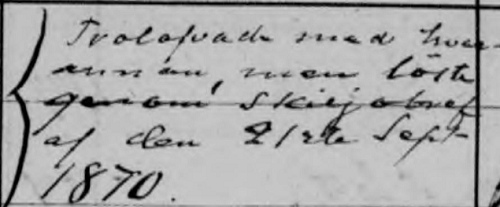 Trolofvade med hvar
annan, men löste
genom skiljobref
af den 21ste Sept
1870.